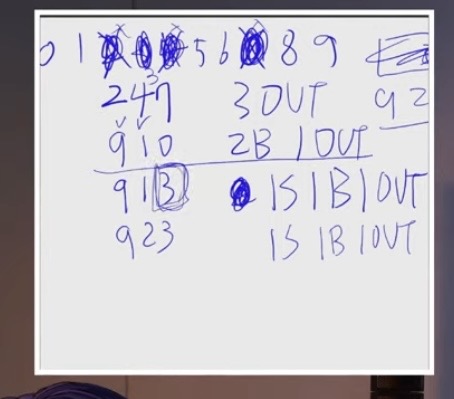 0 1 5 6 8 9
247 3 OUT 92
910 2B 1 OUT
913 1S 1B 1 OUT
923 1S 1B 1OUT